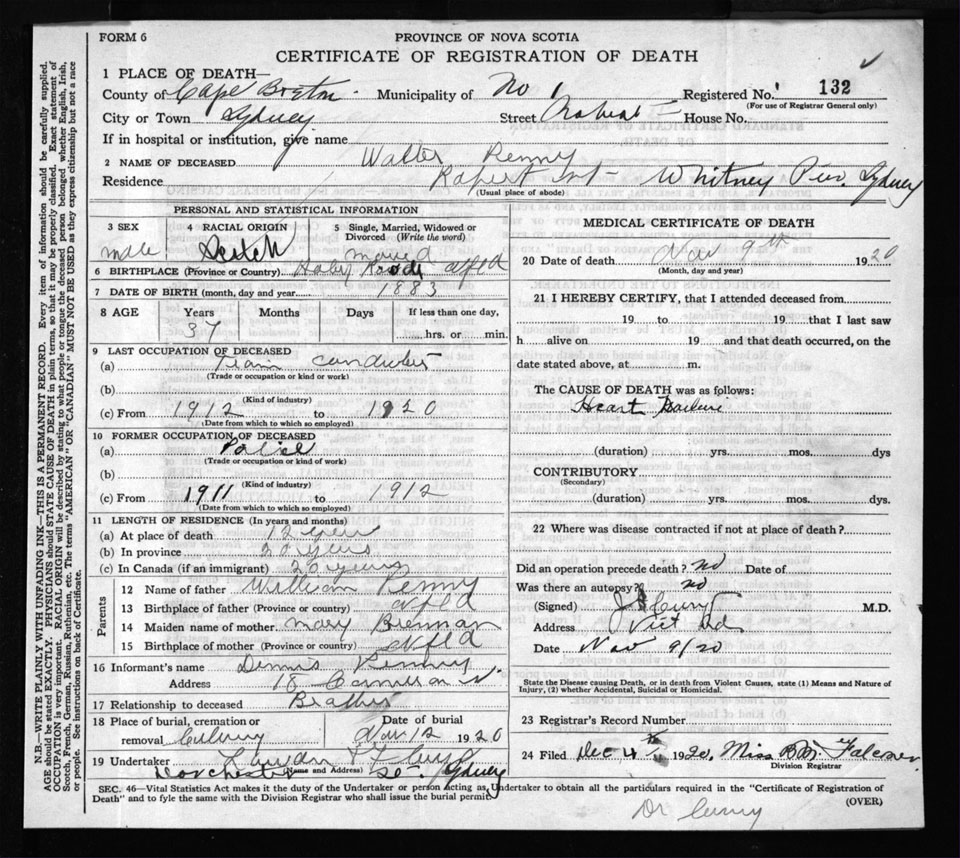 FORM 6
PROVINCE OF NOVA SCOTIA
CERTIFICATE OF REGISTRATION OF DEATH
N.B.—WRITE PLAINLY WITH UNFADING INK—THIS IS A PERMANENT RECORD. Every item of information should be carefully supplied.
AGE should be stated EXACTLY. PHYSICIANS should STATE CAUSE OF DEATH in plain terms, so that it may be properly classified. Exact statement of
OCCUPATION is very important. RACIAL ORIGIN will be described by stating to what people or tongue the deceased person belonged whether English, Irish,
Scotch, French, German, Russian, Ruthenian, etc. The terms "AMERICAN" OR "CANADIAN" MUST NOT BE USED as they express citizenship but not a race
or people. See instructions on back of Certificate.
1 PLACE OF DEATH—
County of Cape Breton Municipality of No 1 Registered No. 132
(For use of Registrar General only)
City or Town Sydney Street House No.
If in hospital or institution, give name
2 NAME OF DECEASED Walter Penny
Residence Rupert Whitney Pier, Sydney
(Usual place of abode)
PERSONAL AND STATISTICAL INFORMATION
3 SEX male
4 RACIAL ORIGIN
5 Single, Married, Widowed or Divorced (Write the word) married
6 BIRTHPLACE (Province or Country) Nfld
7 DATE OF BIRTH (month, day and year) 1883
8 AGE Years 37 Months Days If less than one day, hrs. or min.
9 LAST OCCUPATION OF DECEASED
(a) conductor
(Trade or occupation or kind or work)
(b)
(Kind of industry)
(c) From 1912 to 1920
(Date from which to which so employed)
10 FORMER OCCUPATION OF DECEASED
(a) Police
(Trade or occupation or kind or work)
(b)
(Kind of industry)
(c) From 1911 to 1912
(Date from which to which so employed)
11 LENGTH OF RESIDENCE (In years and months)
(a) At place of death 12 years
(b) In province 20 years
(c) In Canada (if an immigrant) 20 years
Parents
12 Name of father William Penny
13 Birthplace of father (Province or country) Nfld
14 Maiden name of mother Mary Brennan
15 Birthplace of mother (Province or country) Nfld
16 Informant's name Dennis Penny
Address 18
17 Relationship to deceased Brother
18 Place of burial, cremation or removal Date of burial Nov. 12 1920
19 Undertaker
(Name and Address) Dorchester St. Sydney
MEDICAL CERTIFICATE OF DEATH
20 Date of death Nov 9th 1920
(Month, day and year)
21 I HEREBY CERTIFY, that I attended deceased from
19 to 19 that I last saw
h alive on 19 and that death occurred, on the
date stated above, at m.
The CAUSE OF DEATH was as follows:
Heart Failure
(duration) yrs. mos. dys
CONTRIBUTORY
(Secondary)
(duration) yrs. mos. dys.
22 Where was disease contracted if not at place of death?
Did an operation precede death? no Date of
Was there an autopsy? no
(Signed) M.D.
Address Vict Rd
Date Nov 9/20
State the Disease causing Death, or in death from Violent Causes, state (1) Means and Nature of
Injury, (2) whether Accidental, Suicidal or Homicidal.
23 Registrar's Record Number
24 Filed Dec 4th 1920, Miss
Division Registrar
SEC. 46—Vital Statistics Act makes it the duty of the Undertaker or person acting as Undertaker to obtain all the particulars required in the "Certificate of Registration of
Death" and to fyle the same with the Division Registrar who shall issue the burial permit.
(OVER)
Dr